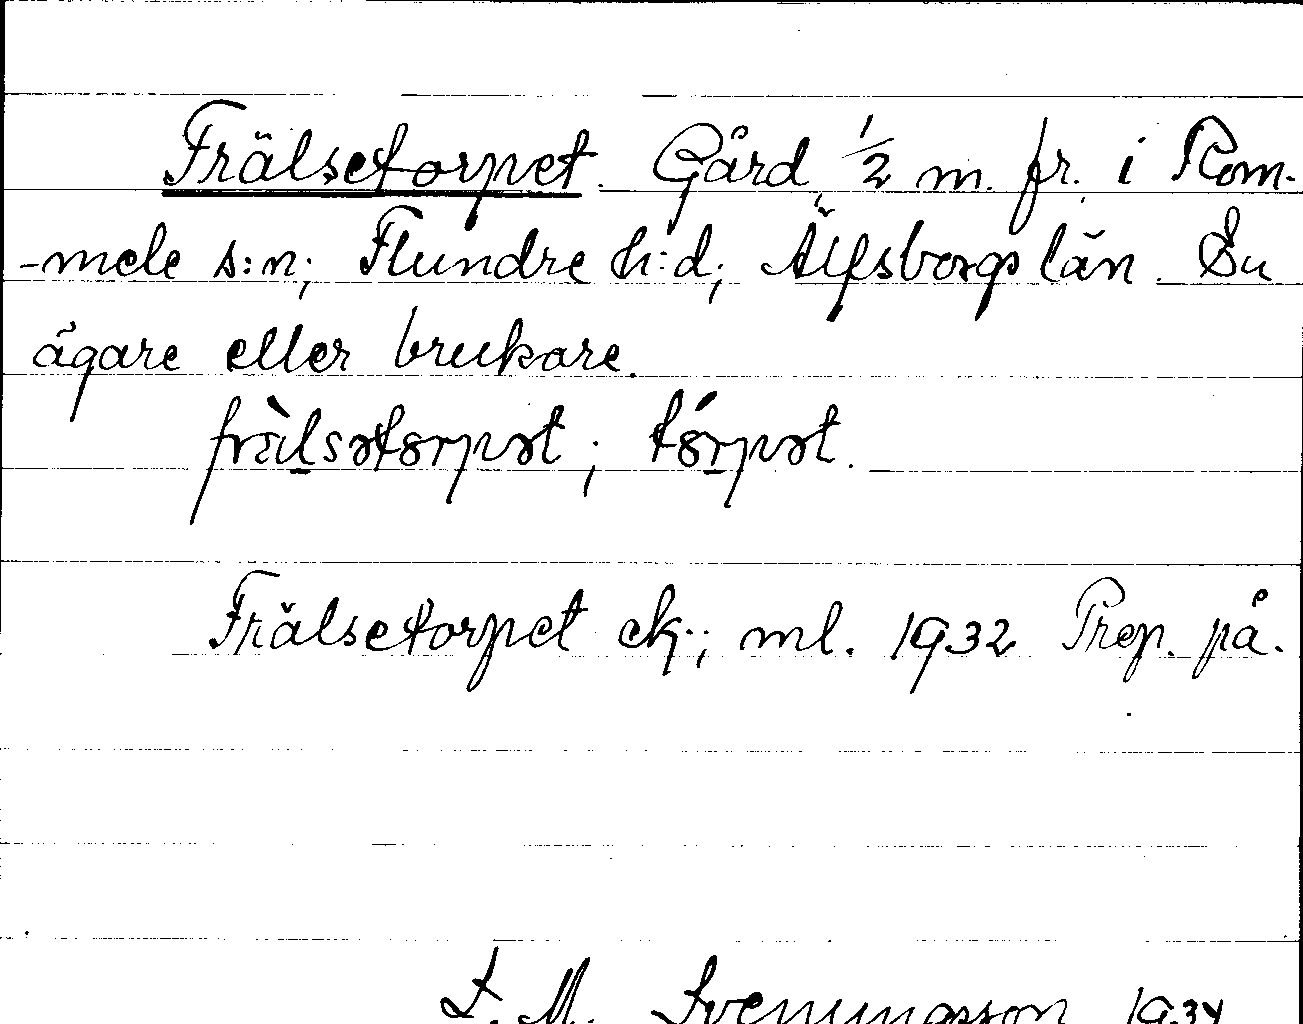 Frälsetorpet. Gård, 1/2 m. fr. i Rom-
-mele s:n; Flundre h:d; Älfsborgs län. En
ägare eller brukare.
frä̀lsətorpət; tórpət.
Frälsetorpet ek.; ml. 1932 Prep. på.
F. M. Svenningsson 1934